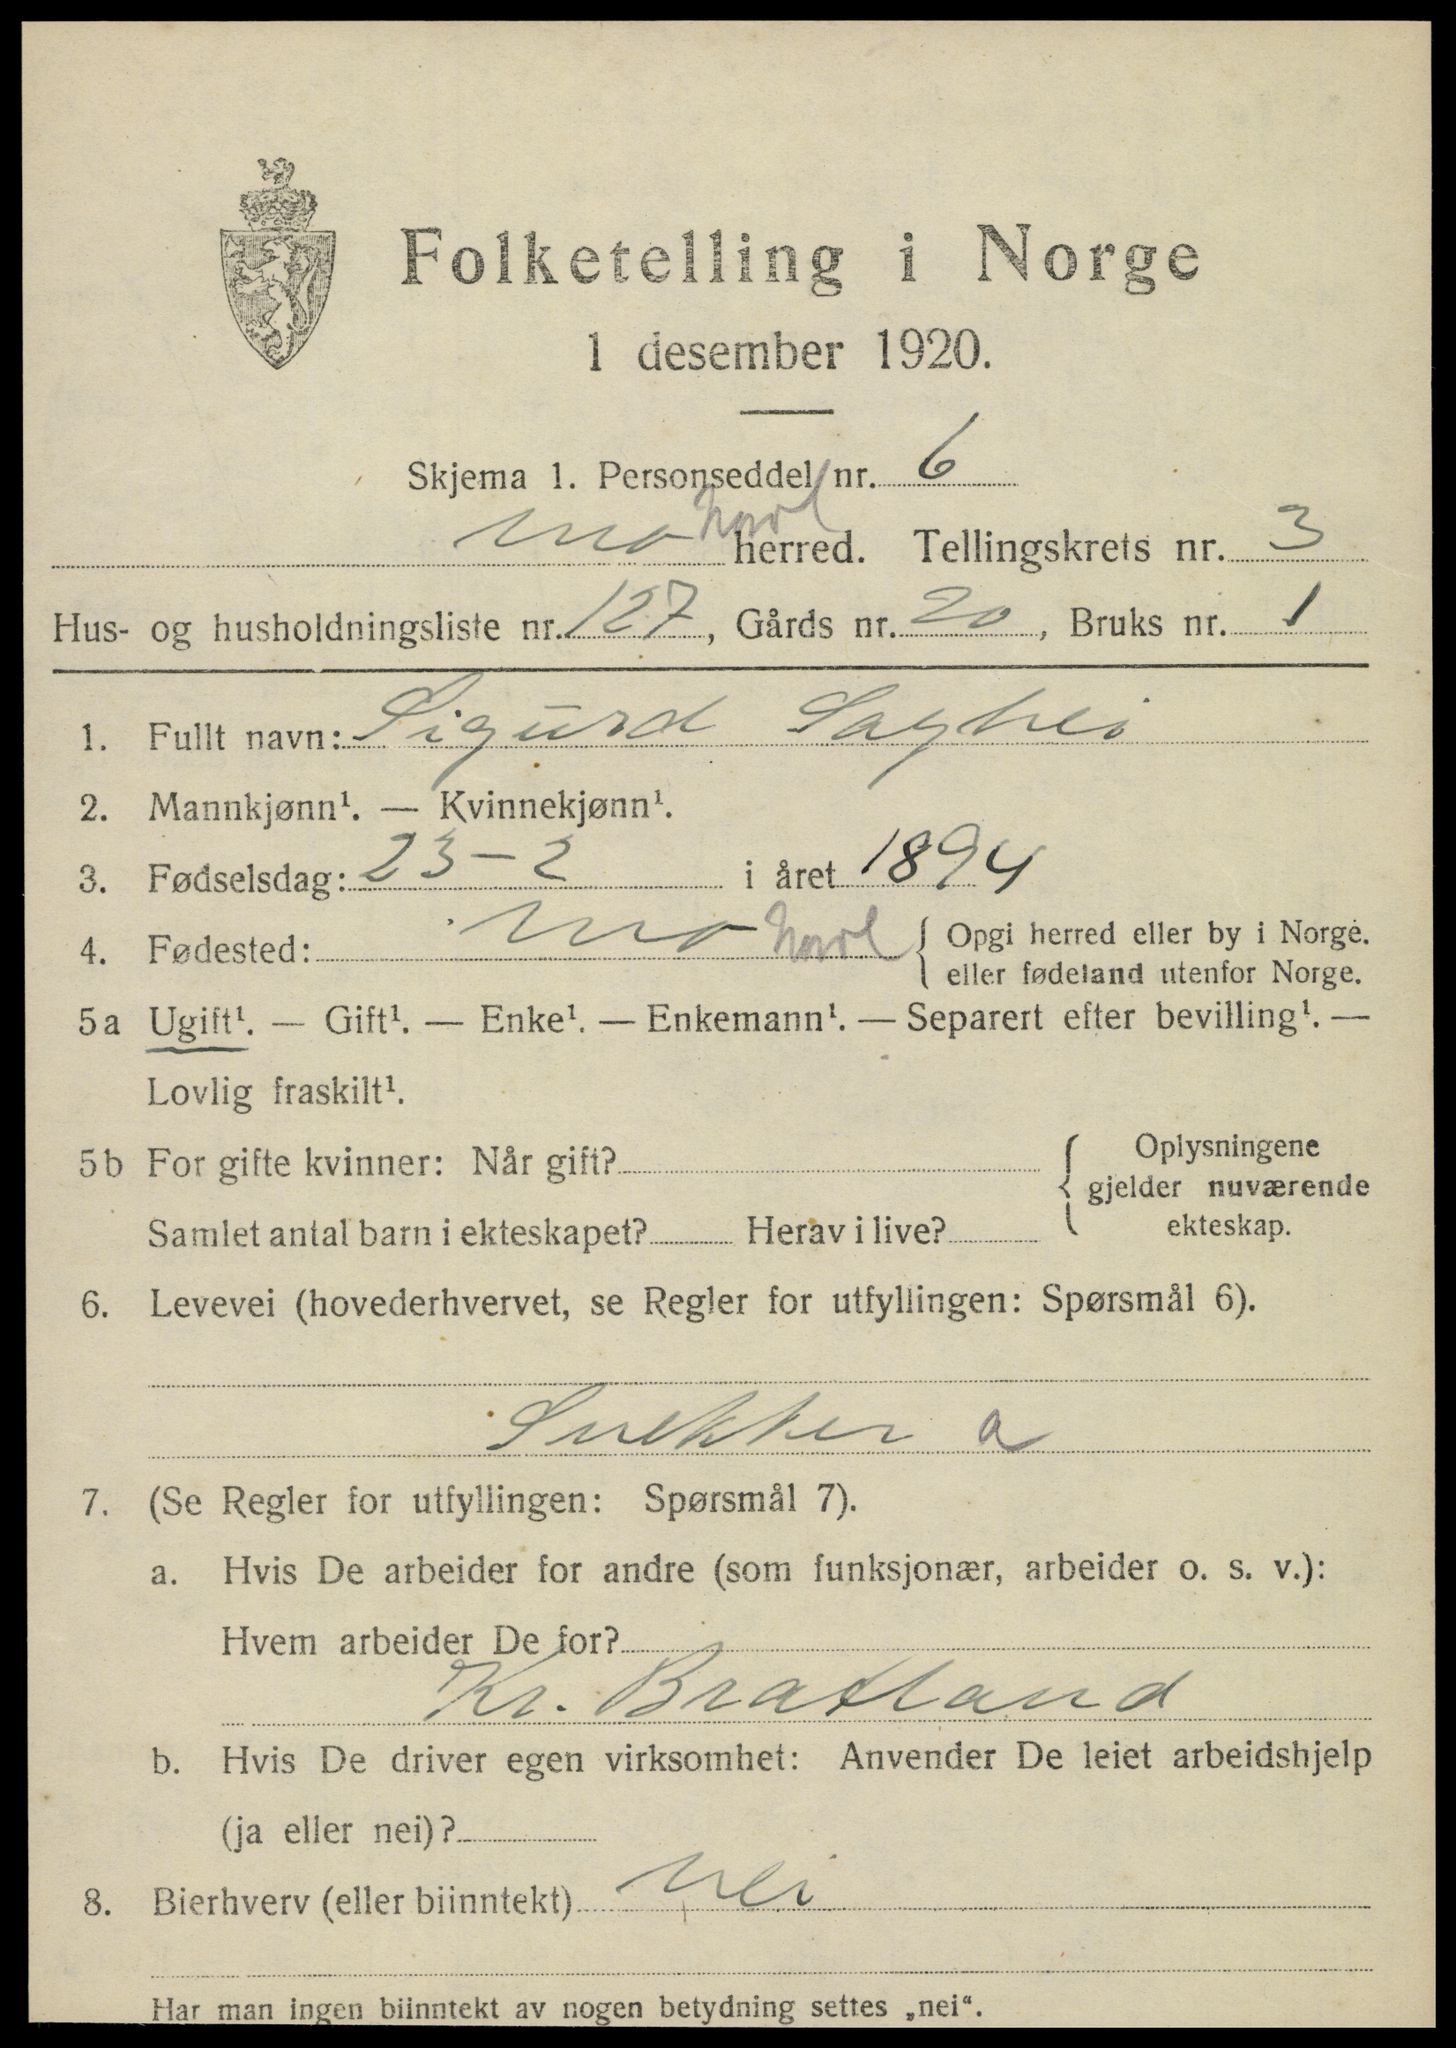 Folketelling i Norge
1 desember 1920.
Skjema 1. Personseddel nr. 6
Mo Nordl herred. Tellingskrets nr. 3
Hus- og husholdningsliste nr. 127, Gårds nr. 20, Bruks nr. 1
1. Fullt navn: Sigurd Saghei
2. Mannkjønn¹. — Kvinnekjønn¹.
3. Fødselsdag: 23-2 i året 1894
4. Fødested: Mo Nordl { Opgi herred eller by i Norge.
eller fødeland utenfor Norge.
5a Ugift¹. — Gift¹. — Enke¹. — Enkemann¹. — Separert efter bevilling¹. —
Lovlig fraskilt¹.
5b For gifte kvinner: Når gift? { Oplysningene
gjelder nuværende
Samlet antal barn i ekteskapet? Herav i live? ekteskap.
6. Levevei (hovederhvervet, se Regler for utfyllingen: Spørsmål 6).
Snekker a
7. (Se Regler for utfyllingen: Spørsmål 7).
a. Hvis De arbeider for andre (som funksjonær, arbeider o. s. v.):
Hvem arbeider De for?
Kr. Bratland
b. Hvis De driver egen virksomhet: Anvender De leiet arbeidshjelp
(ja eller nei)?
8. Bierhverv (eller biinntekt) nei
Har man ingen biinntekt av nogen betydning settes „nei“.